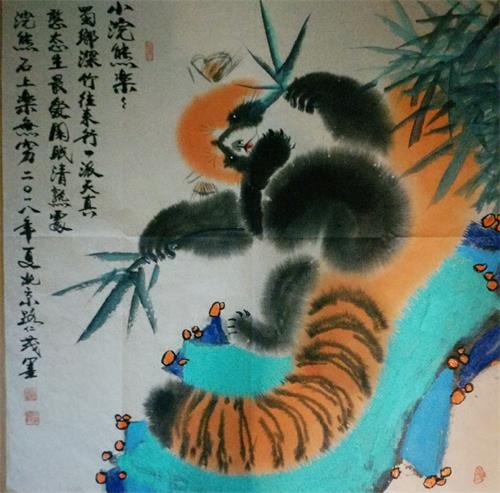 小浣熊乐
蜀乡深竹往来行一派天真
憨态生最爱闲眠清
浣熊石上乐无穷二〇一八年夏北京路仁茂墨